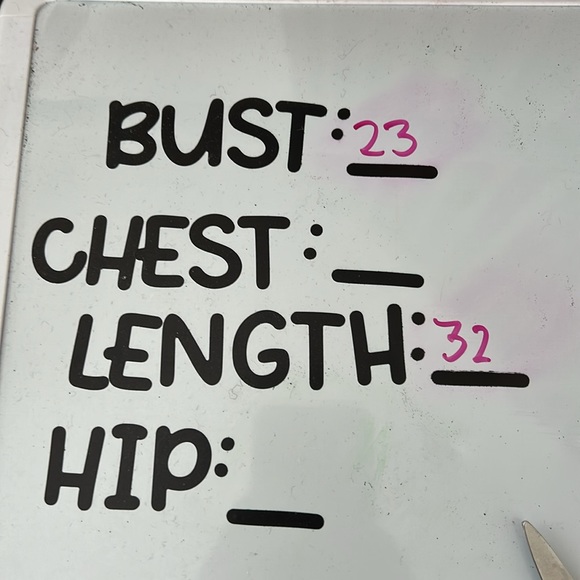 BUST: 23
CHEST:
LENGTH: 32
HIP: